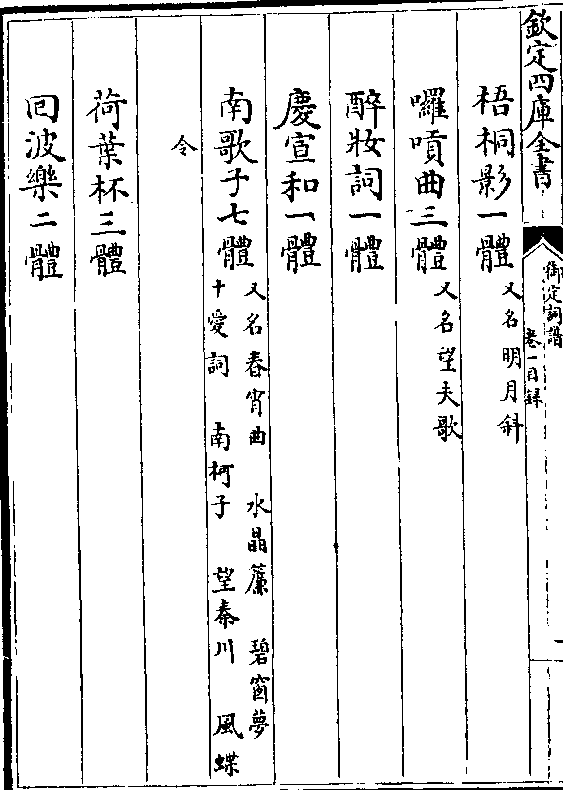 欽定四庫全書
御定詞譜
卷一目録
梧桐影一體 又名明月斜
囉嗊曲三體 又名望夫歌
醉妝詞一體
慶宣和一體
南歌子七體 又名春宵曲 水晶簾 碧窗夢
十愛詞 南柯子 望秦川 風蝶
令
荷葉杯三體
回波樂二體